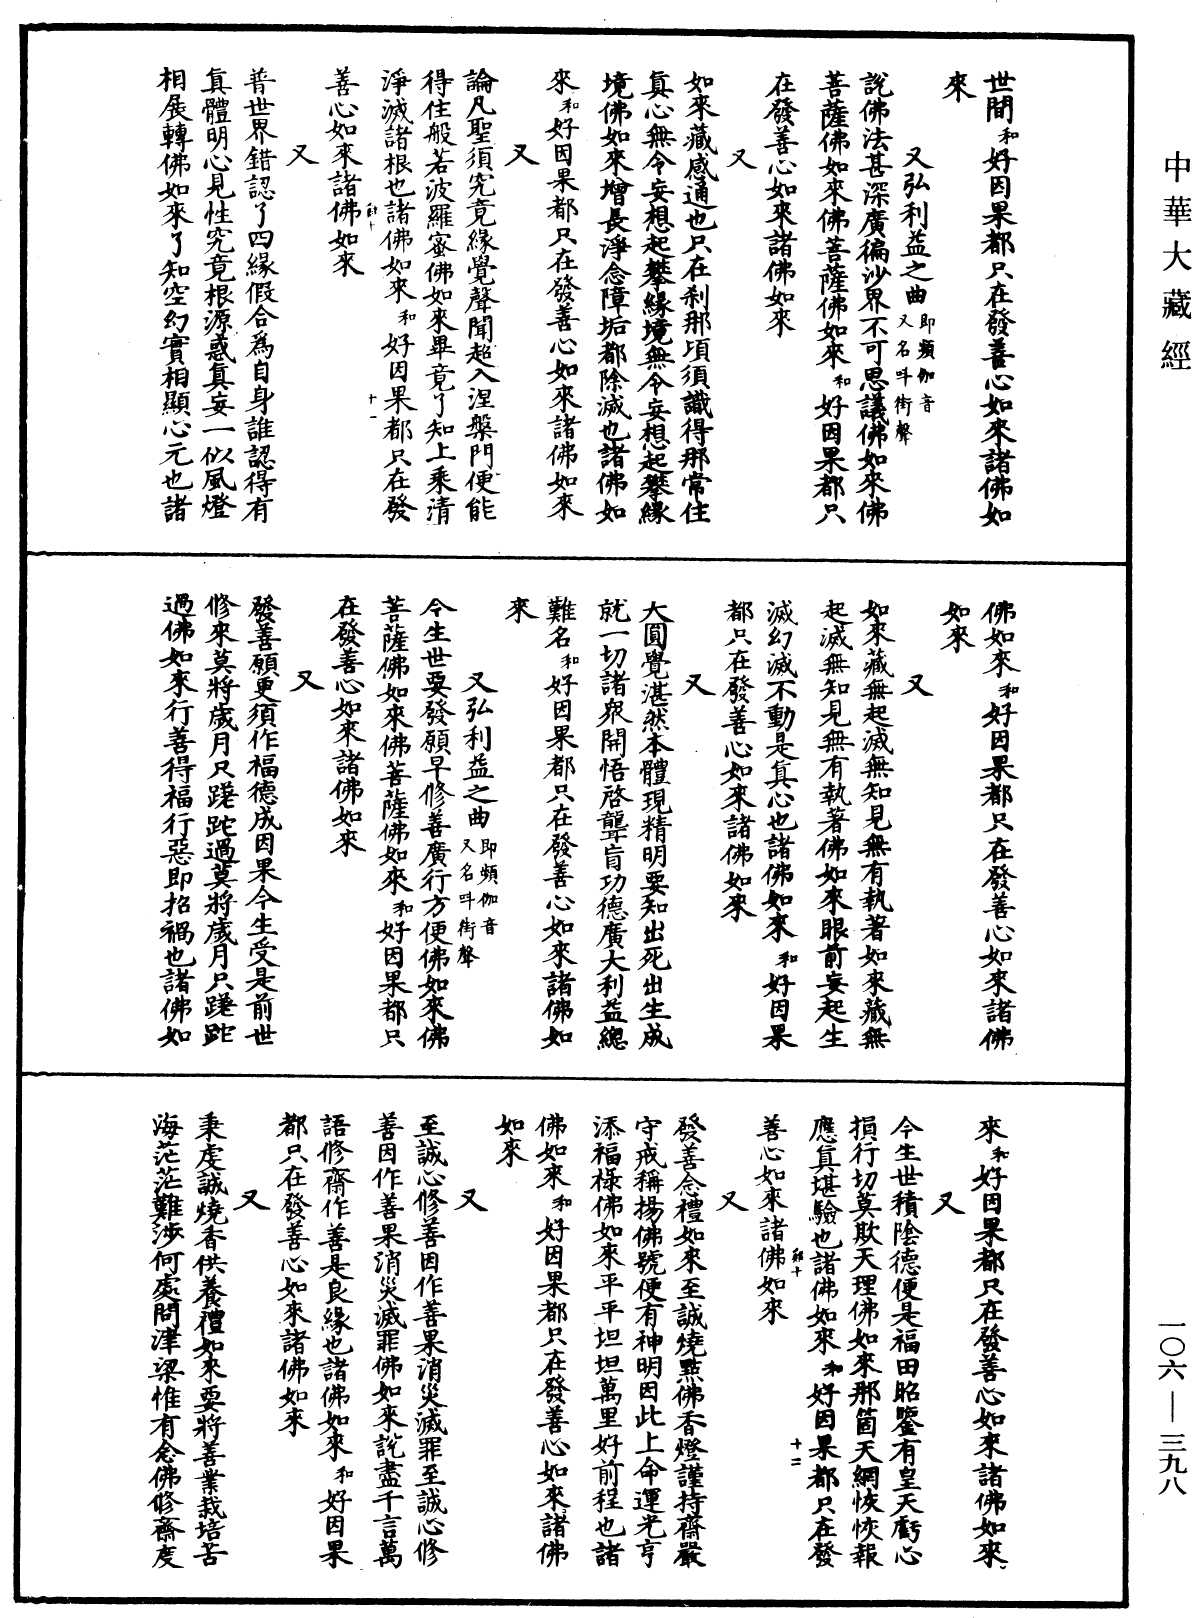 中華大藏經
世間和好因果都只在發善心如來諸佛如
來
又弘利益之曲即頻伽音又名叫街聲
說佛法甚深廣徧沙界不可思議佛如來佛
菩薩佛如來佛菩薩佛如來和好因果都只
在發善心如來諸佛如來
又
如來藏感通也只在刹那頃須識得那常住
真心無令妄想起攀緣境無令妄想起攀緣
境佛如來增長淨念障垢都除滅也諸佛如
來和好因果都只在發善心如來諸佛如來
又
論凡聖須究竟緣覺聲聞超入涅槃門便能
得住般若波羅蜜佛如來畢竟了知上乘清
淨滅諸根也諸佛如來和好因果都只在發
十一
善心如來諸佛如來
又
普世界錯認了四緣假合爲自身誰認得有
真體明心見性究竟根源惑真妄一似風燈
相展轉佛如來了知空幻實相顯心元也諸
佛如來和好因果都只在發善心如來諸佛
如來
又
如來藏無起滅無知見無有執著如來藏無
起滅無知見無有執著佛如來眼前妄起生
滅幻滅不動是真心也諸佛如來和好因果
都只在發善心如來諸佛如來
又
大圓覺湛然本體現精明要知出死出生成
就一切諸衆開悟啓聾盲功德廣大利益總
難名和好因果都只在發善心如來諸佛如
來
又弘利益之曲即頻伽音又名叫街聲
今生世要發願早修善廣行方便佛如來佛
菩薩佛如來佛菩薩佛如來和好因果都只
在發善心如來諸佛如來
又
發善願更須作福德成因果今生受是前世
修來莫將歲月只蹉跎過莫將歲月只蹉跎
過佛如來行善得福行惡即招禍也諸佛如
來和好因果都只在發善心如來諸佛如來
又
今生世積陰德便是福田昭鑒有皇天虧心
損行切莫欺天理佛如來那箇天網恢恢報
應真堪驗也諸佛如來和好因果都只在發
十二
善心如來諸佛如來
又
發善念禮如來至誠燒點佛香燈謹持齋嚴
守戒稱揚佛號便有神明因此上命運光亨
添福祿佛如來平平坦坦萬里好前程也諸
佛如來和好因果都只在發善心如來諸佛
如來
又
至誠心修善因作善果消災滅罪至誠心修
善因作善果消災滅罪佛如來說盡千言萬
語修齋作善是良緣也諸佛如來和好因果
都只在發善心如來諸佛如來
又
秉虔誠燒香供養禮如來要將善業栽培苦
海茫茫難涉何處問津梁惟有念佛修齋度
一〇六—三九八